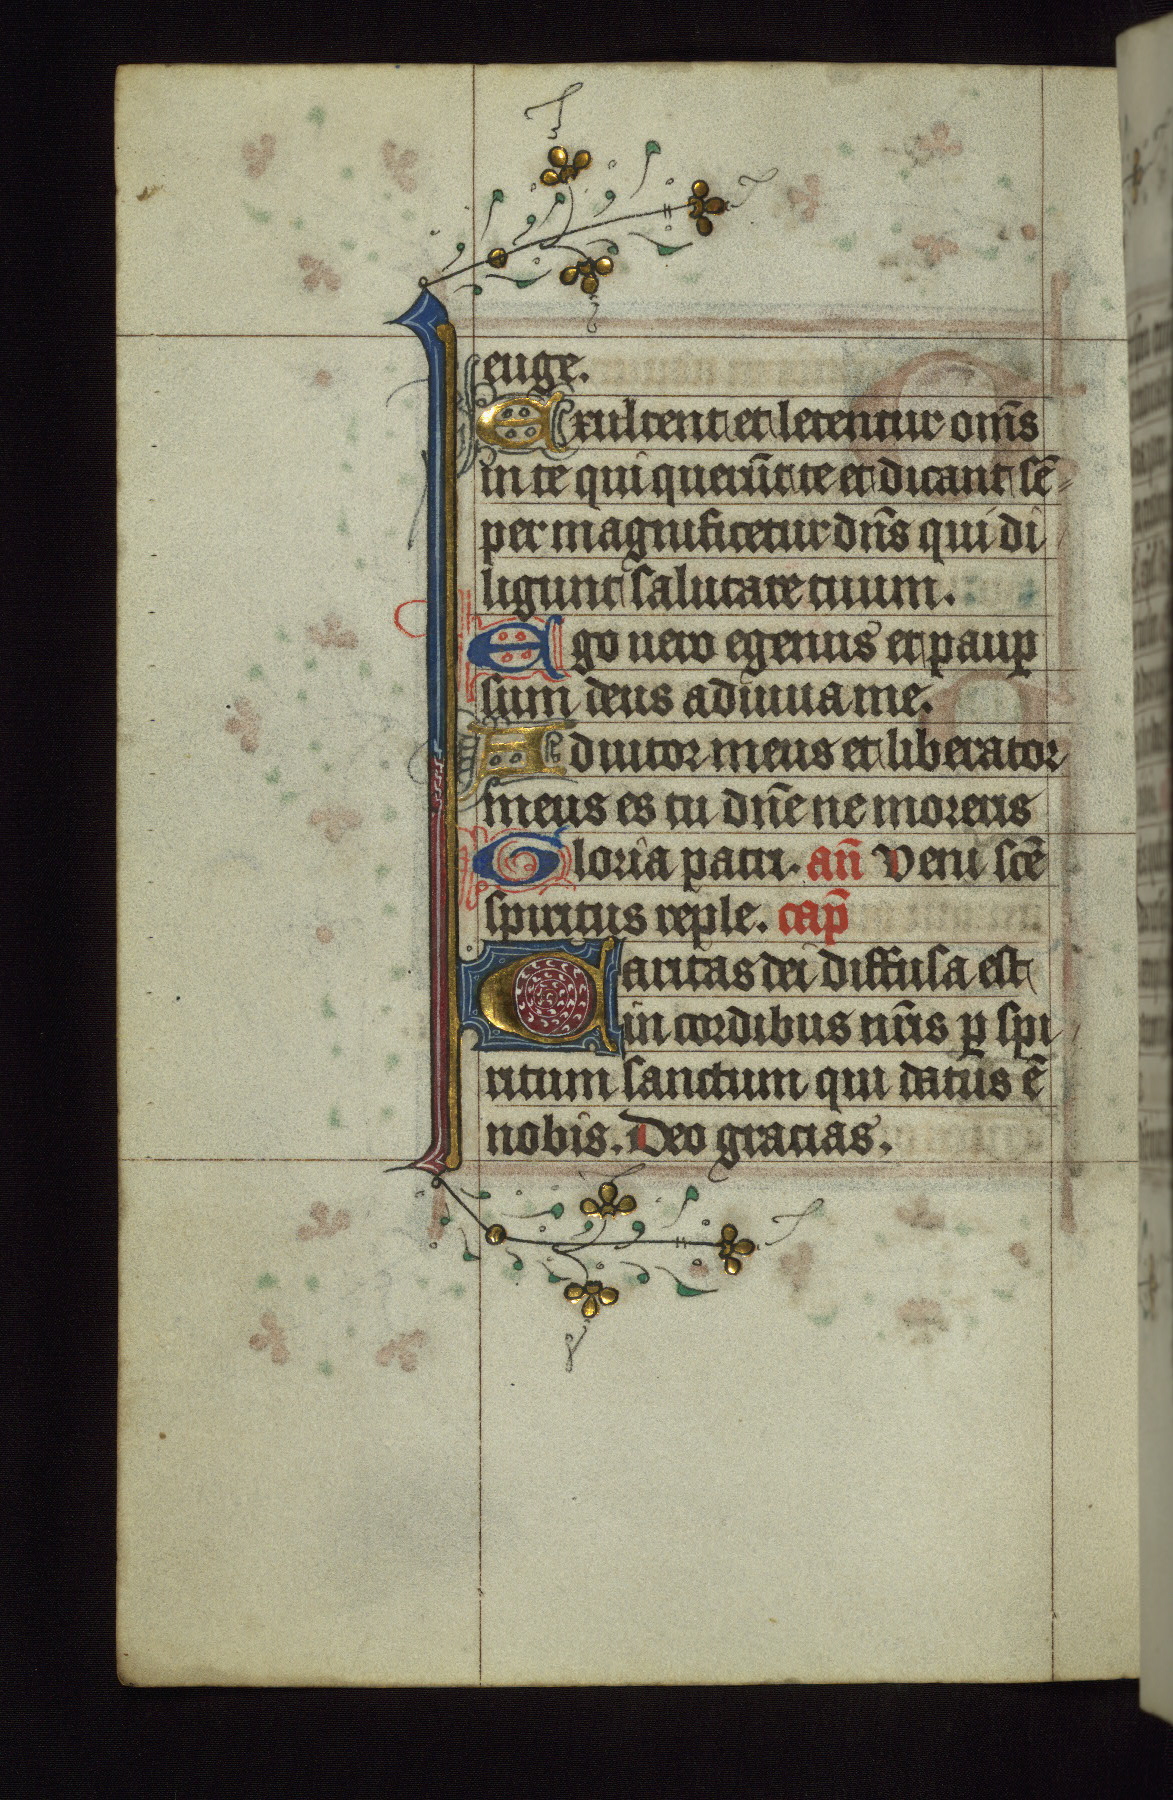 euge.
Exultent et letentur om̄s
in te qui querūt te et dicant sē
per magnificetur dn̄s qui di
ligunt salutare tuum.
Ego uero egenus et paup̲
sum deus adiuua me.
Adiutor meus et liberator
meus es tu dn̄e ne moreris
Gloria patri. an̄ Veni scē
spiritus reple. cap̄
Caritas dei diffusa est
in cordibus nr̄is p̲ spi
ritum sanctum qui datus ē
nobis. Deo gracias.